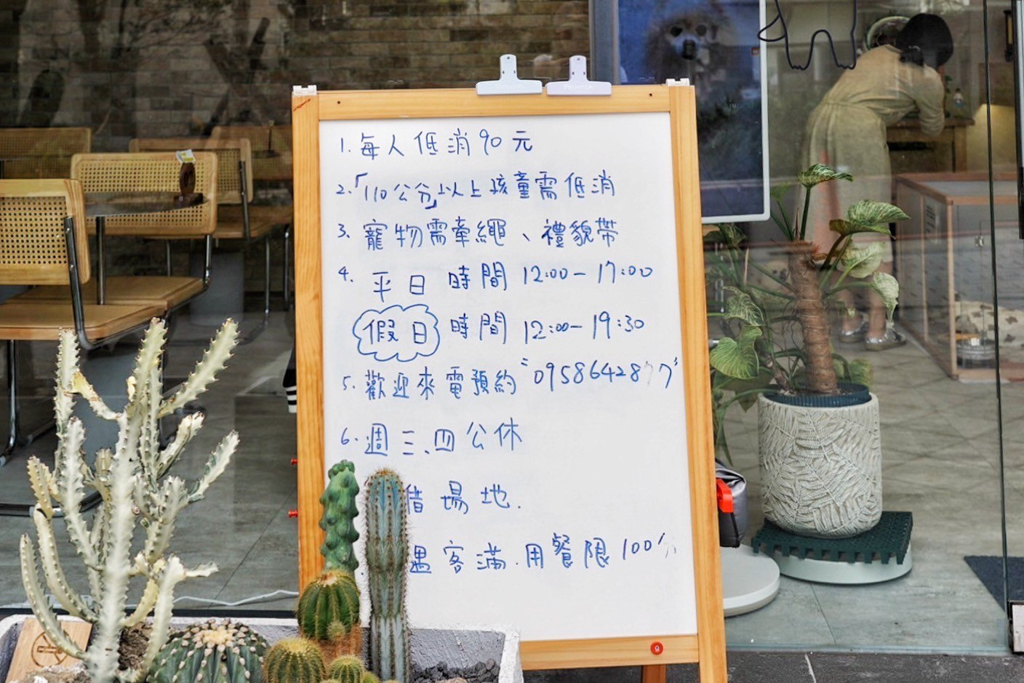 1. 每人低消90元
2.「110公分」以上孩童需低消
3. 寵物需牽繩、禮貌帶
4. 平日 時間 12:00-17:00
假日 時間 12:00-19:30
5. 歡迎來電預約 "0958642877"
6. 週三.四公休
借場地.
遇客滿.用餐限100分